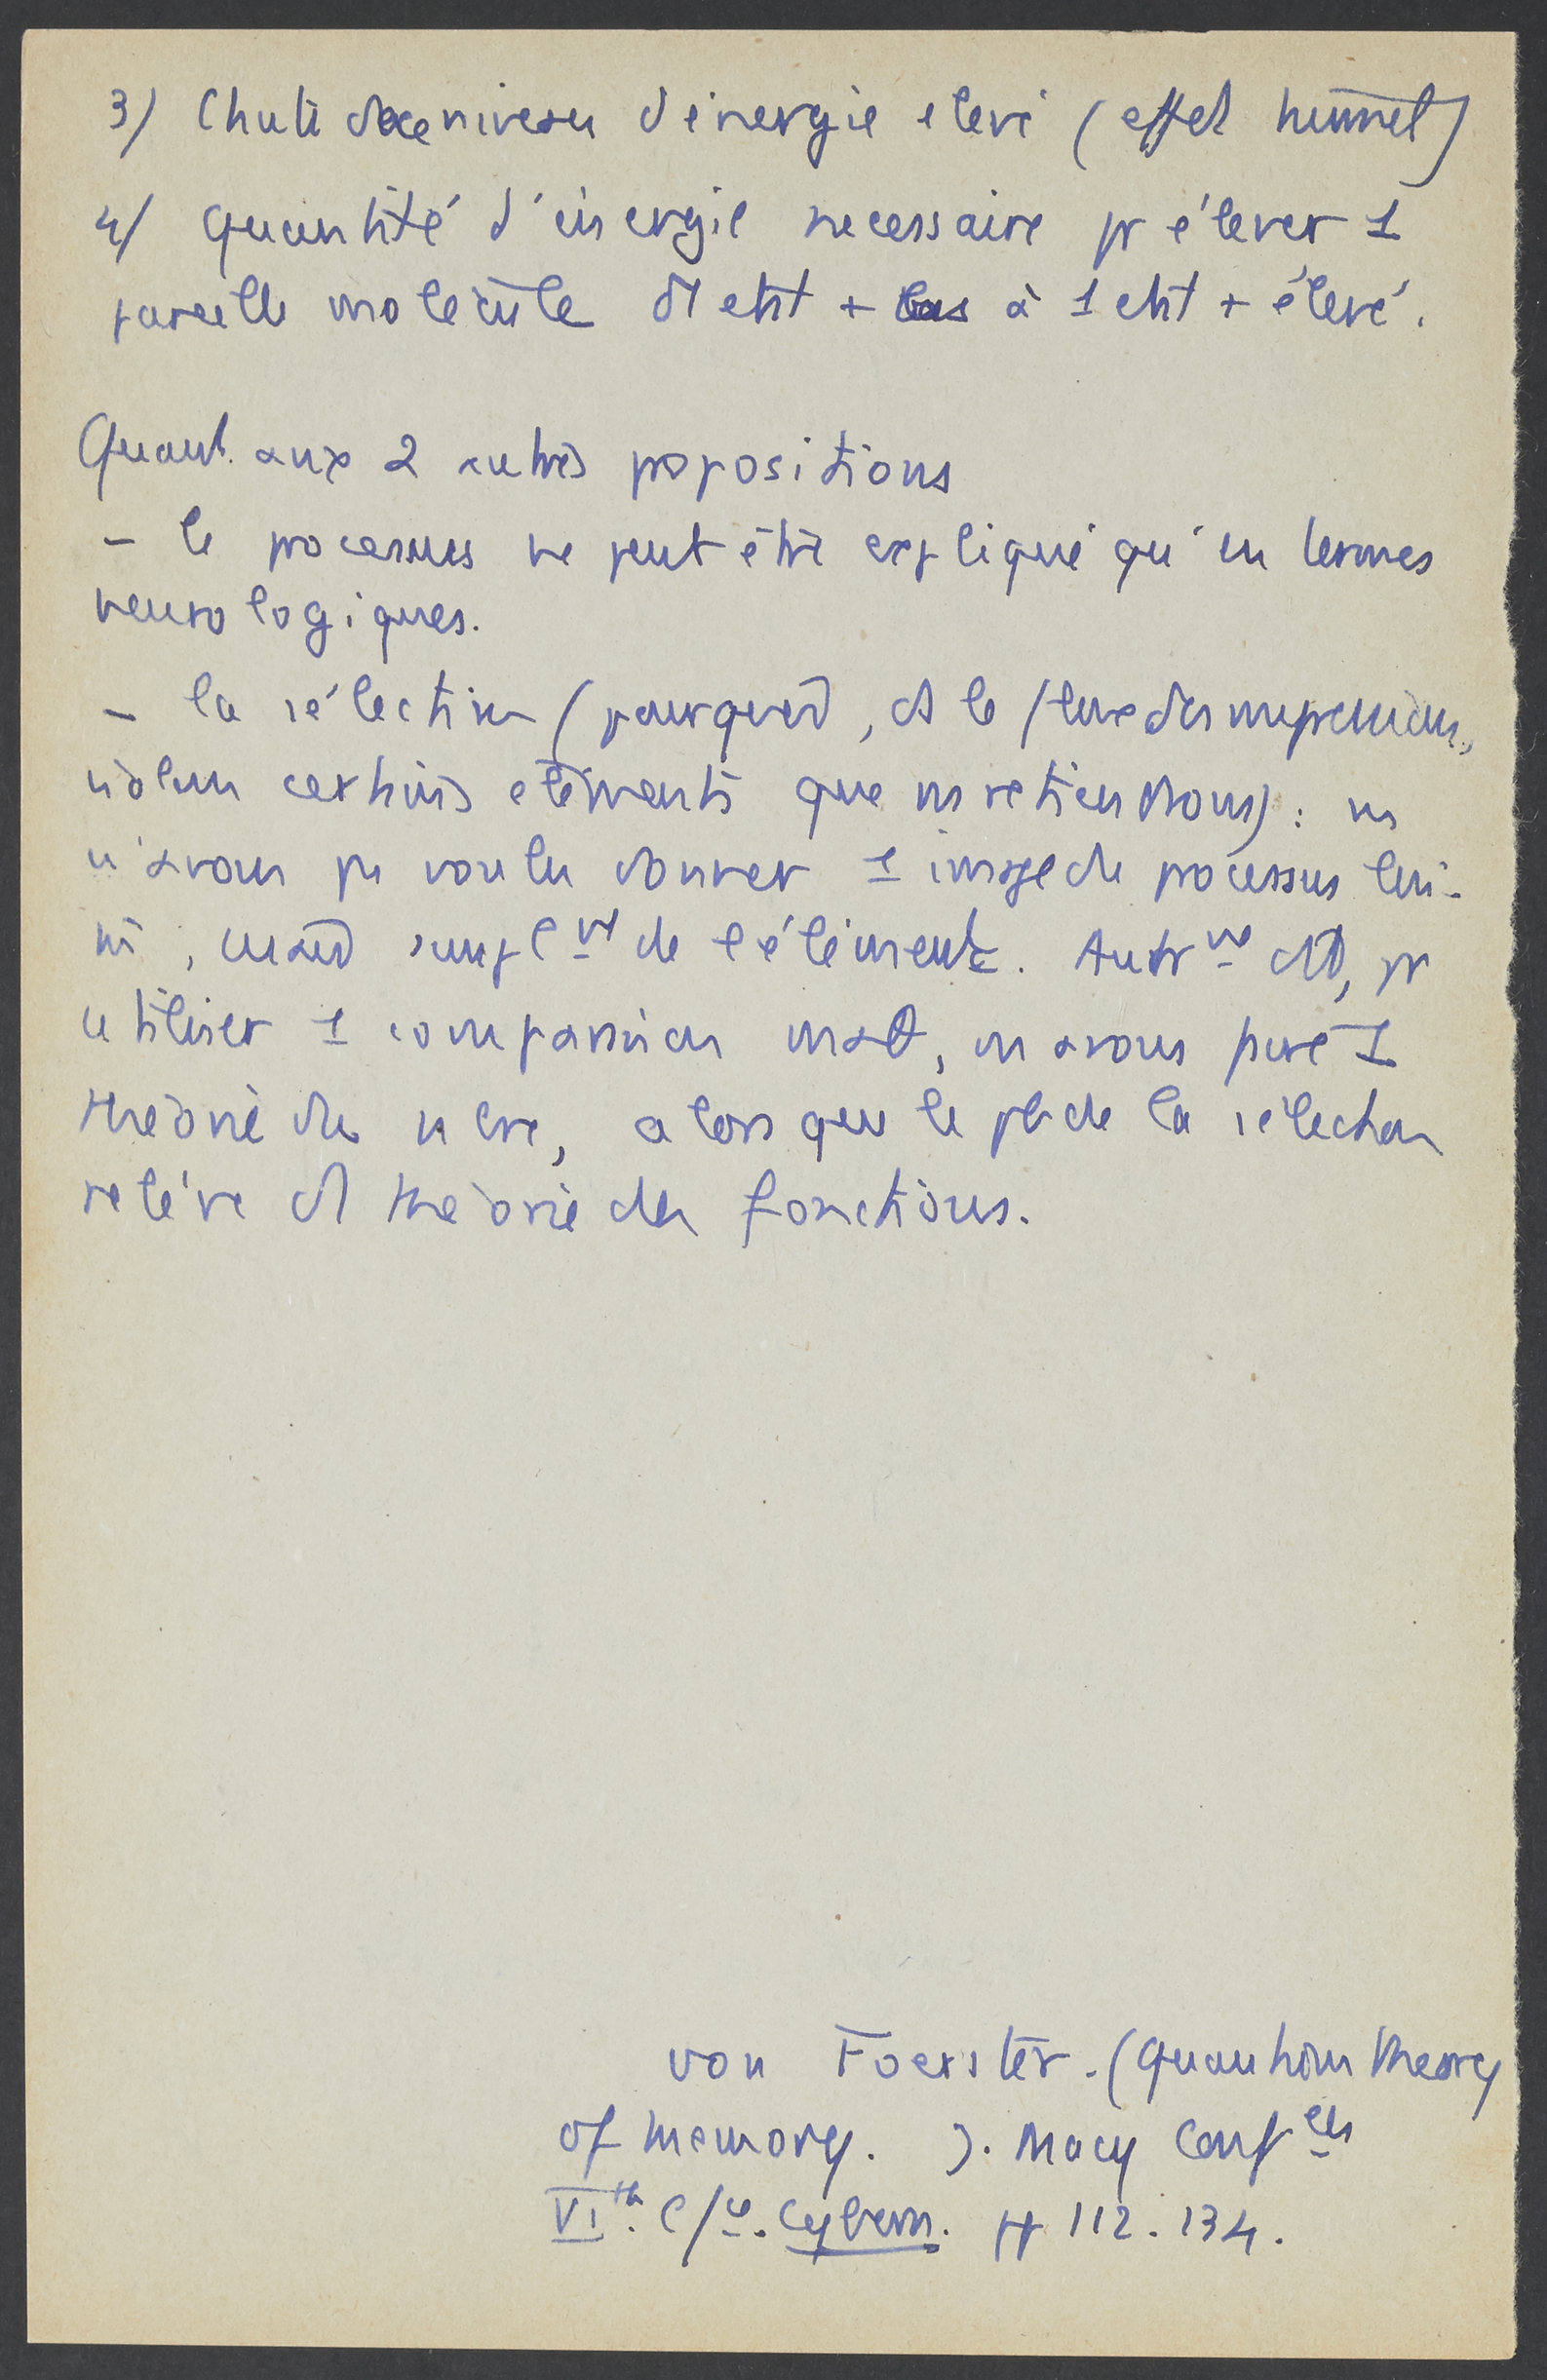 3) Chute de ce niveau d'énergie elevé (effet tunnel)
4/ Quantité d'énergie necessaire pr élever 1
pareille molécule d'1 état + bas à 1 état + élevé.
Quant aux 2 autres propositions
- le processus ne peut être expliqué qu'en termes
neurologiques.
- la sélection (pourquoi, ds le flux des impressions,
isolons certains elements que ns retiendrons) : ns
n'avons pas voulu donner 1 image du processus lui-
m̄, mais simplt de l'élément. Autrt dit, pr
utiliser 1 comparaison math, ns avons
théorie du nbre, alors que le pb de la sélection
relève d'1 théorie des fonctions.
von Foerster. (Quantum theory
of memory. ). Macy Confces
VIth. C/ce. Cybern. pp 112.134.